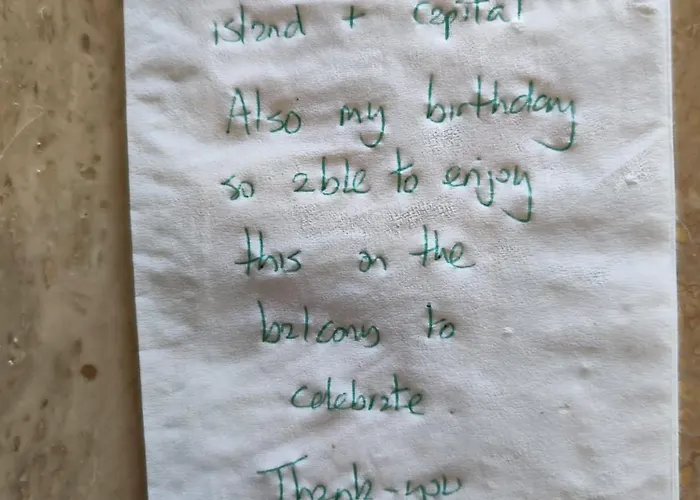 island + Capital
Also my birthday
so able to enjoy
this on the
balcony to
celebrate
Thank-you